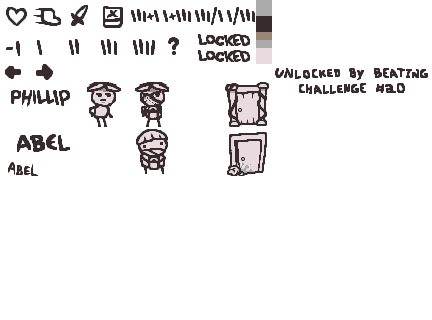 LOCKED
? LOCKED
UNLOCKED BY BEATING
CHALLENGE #20
PHILLIP
ABEL
ABEL